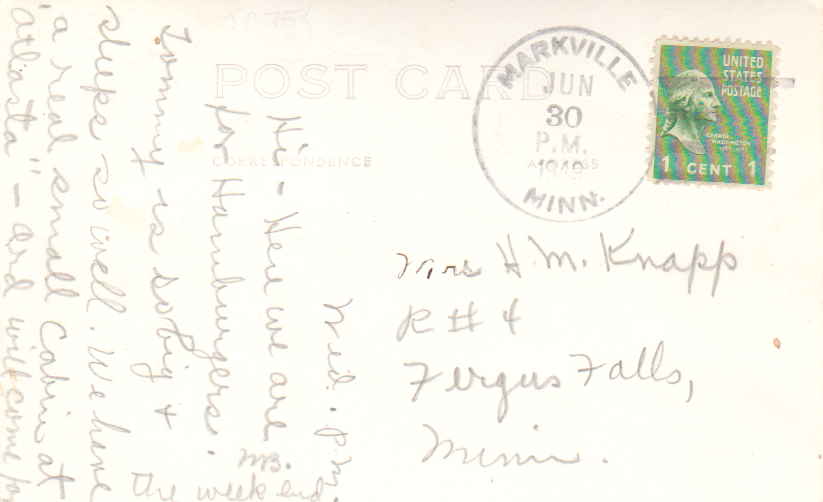 POST CARD
CORRESPONDENCE
MARKVILLE
JUN
30
P.M.
1949
MINN.
UNITED
STATES
POSTAGE
1 CENT 1
Mrs H. M. Knapp
R # 4
Fergus Falls,
Minn.
Wed. P.M.
Hi - Here we are
for Hamburgers.
Tommy is so big &
sleeps so well. We have
a real small Cabin at
" - and will come for
the week end
MB.